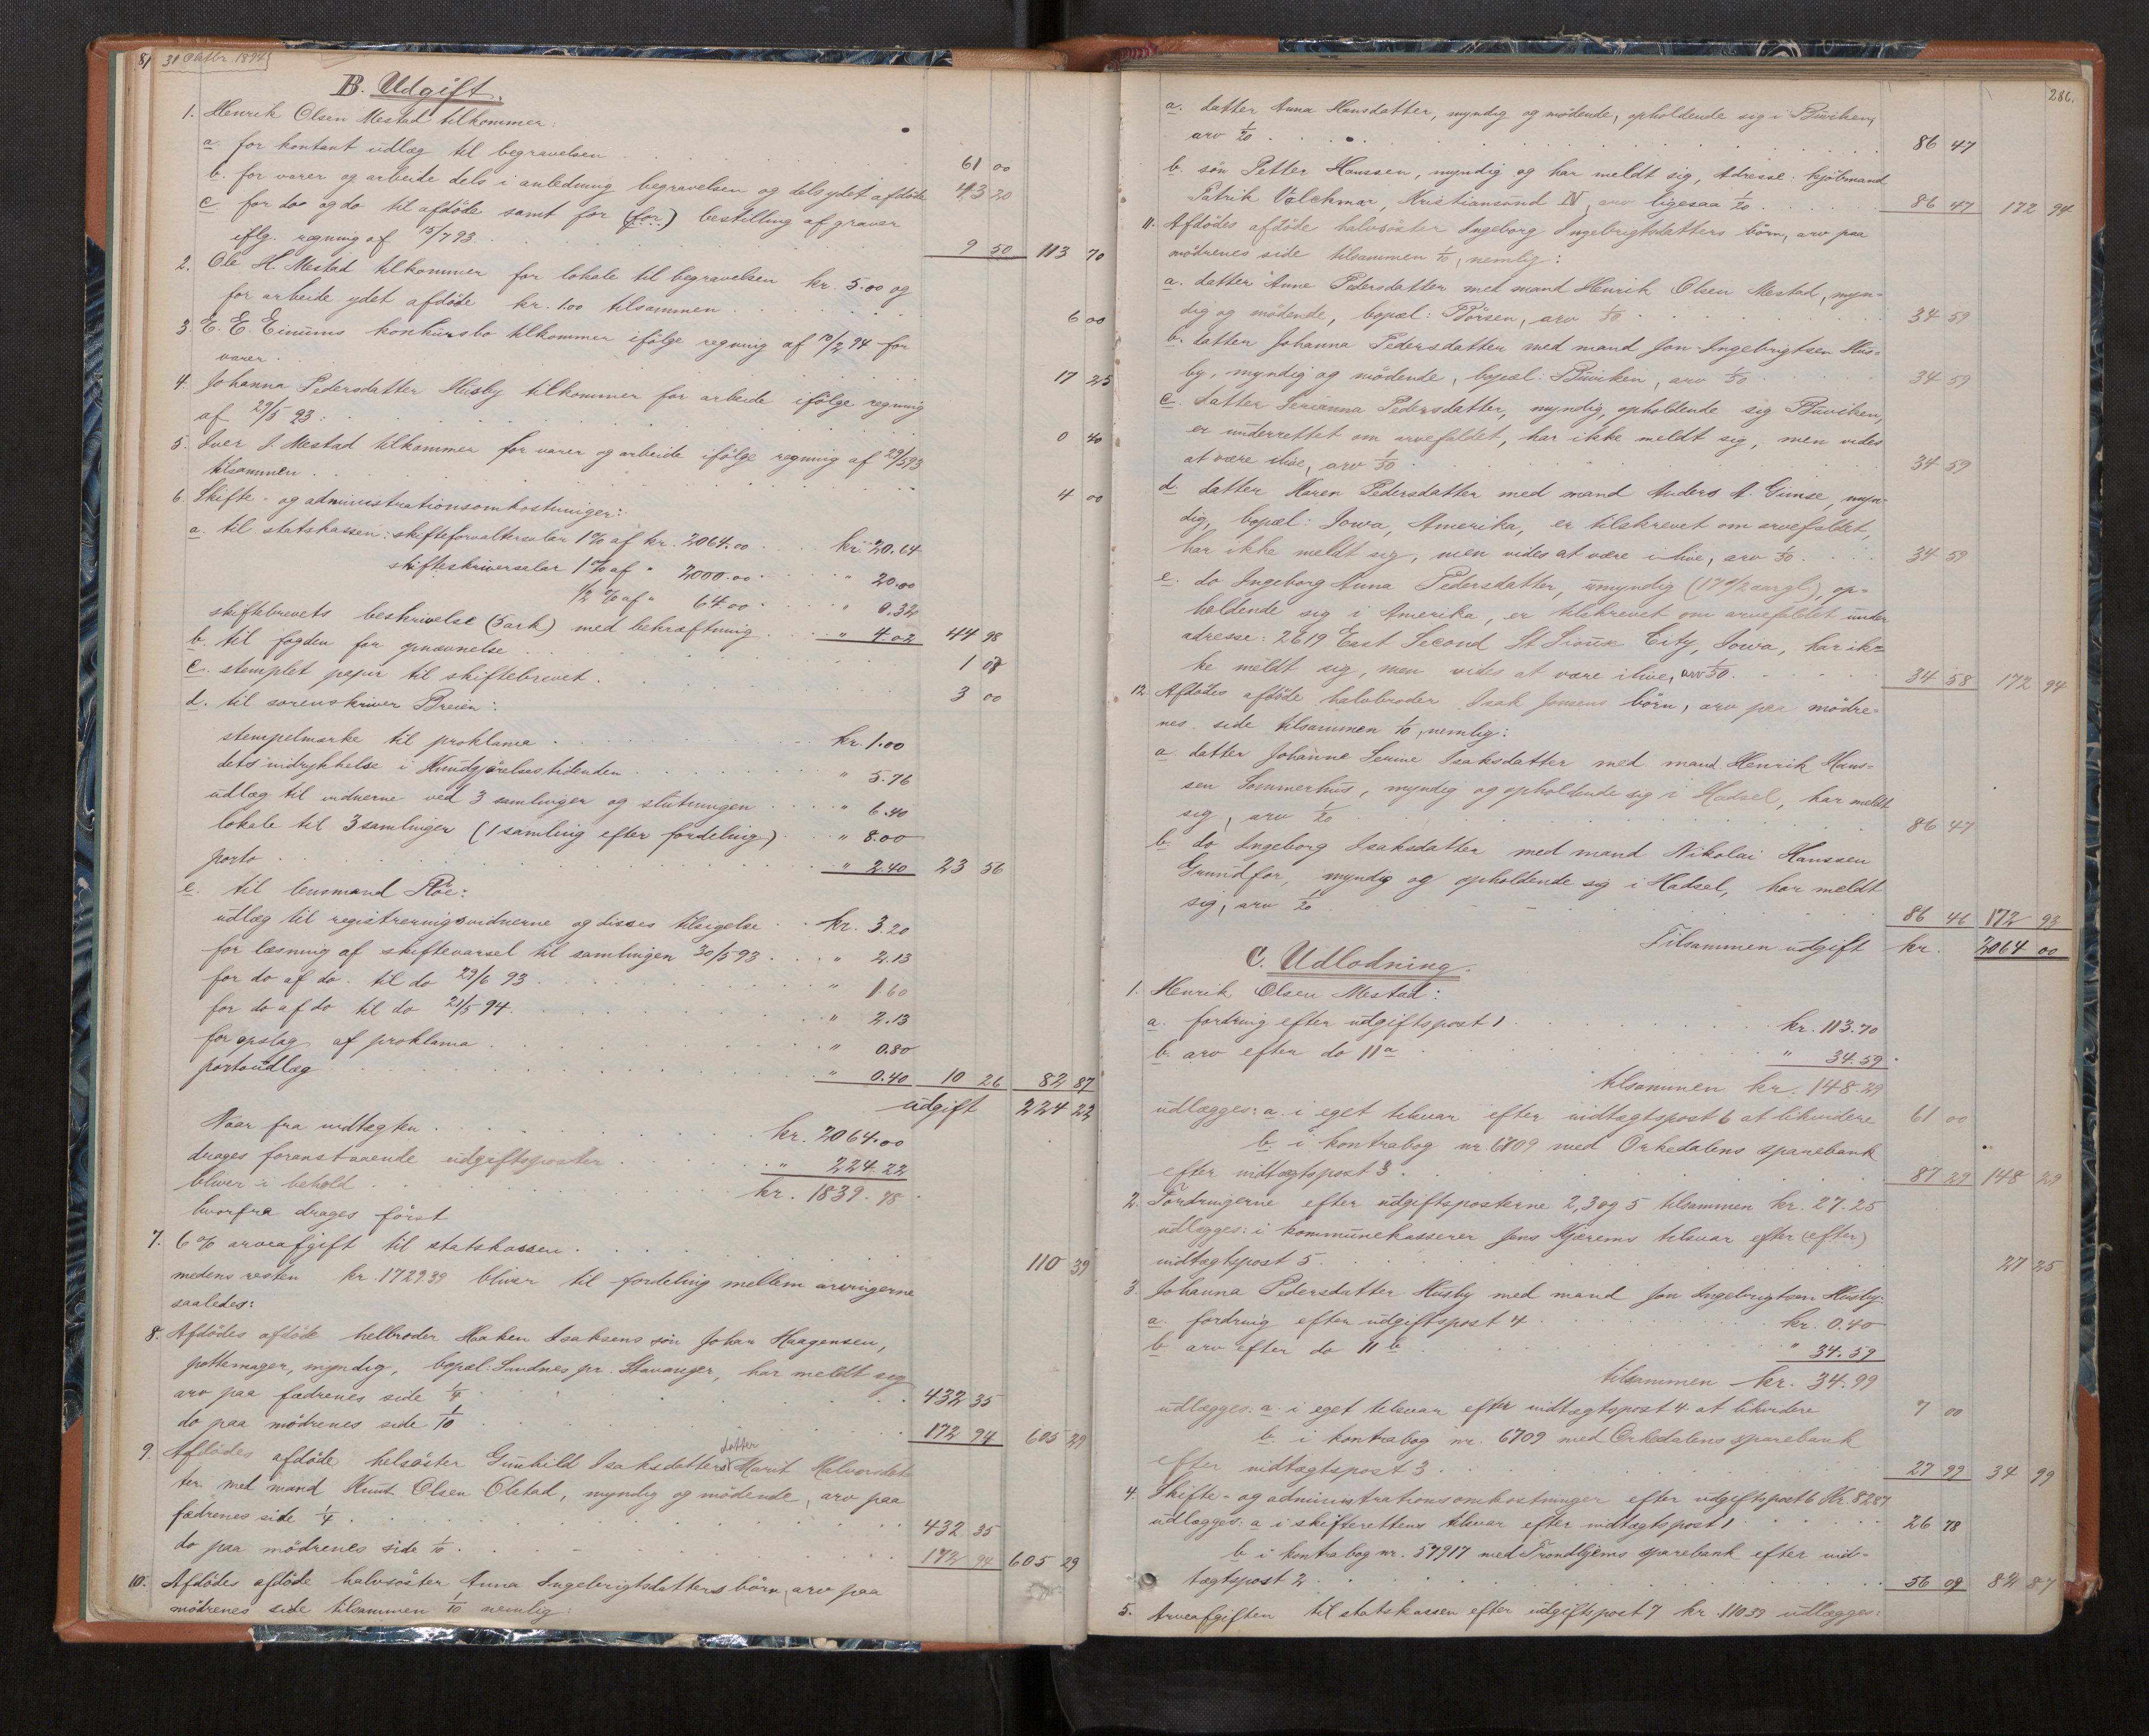 8/ 31 Oktbr. 1894
B. Udgift.
1. Henrik Olsen Mestad tilkommer:
a. for kontant udlæg til begravelsen . . . 61 00
b. for varer og arbeide dels i anledning begravelsen og dels ydet afdöde 43 20
c. for do og do til afdöde samt for (for) bestilling af graver
iflg. regning af 15/7 93 . . . 9 50 113 70
2. Ole H. Mestad tilkommer for lokale til begravelsen kr. 5.00 og
for arbeide ydet afdöde kr. 1.00 tilsammen . . . 6 00
3 E. E. Einums konkursbo tilkommer ifölge regning af 10/2 94 for
varer . . . 17 25
4. Johanna Pedersdatter Husby tilkommer for arbeide ifölge regning
af 29/5 93 . . . 0 40
5. Iver I. Mestad tilkommer for varer og arbeide ifölge regning af 29/5 93
tilsammen . . . 4 00
6. Skifte- og administrationsomkostninger:
a. til statskassen: skifteforvaltersalær 1% af kr. 2064.00 . . . kr. 20.64
skifteskriversalær 1% af " 2000.00 . . . " 20.00
1/2 % af " 64.00 . . . " 0.32
skiftebrevets beskrivelse (5 ark) med bekræftning . . . " 4.02 44 98
b. til fogden for opnævnelse . . . 1 07
c. stemplet papir til skiftebrevet . . . 3 00
d. til sorenskriver Breien:
stempelmarke til proklama . . . kr. 1.00
dets indrykkelse i Kundgjörelsestidenden . . . " 5.76
udlæg til vidnerne ved 3 samlinger og slutningen . . . " 6.40
lokale til 3 samlinger (1 samling efter fordeling) . . . " 8.00
porto . . . " 2.40 23 56
e. til lensmand Röe:
udlæg til registreringsvidnerne og disses tilsigelse . . kr. 3.20
for læsning af skiftevarsel til samlingen 30/5 93 . . . " 2.13
for do af do. til do 29/6 93 . . . " 1.60
for do af do til do 21/5 94 . . . " 2.13
for opslag af proklama . . . " 0.80
portoudlæg . . . " 0.40 10 26 82 87
udgift 224 22
Naar fra indtægten . . . kr. 2064.00
drages foranstaaende udgiftsposter . . . " 224.22
bliver i behold . . . kr. 1839.78
hvorfra drages först
7. 6% arveafgift til statskassen . . . 110 39
medens resten kr. 1729.39 bliver til fordeling mellem arvingerne
saaledes:
8. Afdödes afdöde helbroder Haken Isaksens sön Johan Haagensen,
pottemager, myndig, bopæl: Sandnes pr. Stavanger, har meldt sig
arv paa fædrenes side 1/4 . . . 432 35
do paa mödrenes side 1/10 . . . 172 94 605 29
9. Afdödes afdöde helsöster Gunhild Isaksdatters datter Marit Halvorsdat-
ter med mand Knut Olsen Olstad, myndig og mödende, arv paa
fædrenes side 1/4 . . . 432 35
do paa mödrenes side 1/10 . . . 172 94 605 29
10. Afdödes afdöde halvsöster Anna Ingebrigtsdatters börn, arv paa
mödrenes side tilsammen 1/10 nemlig:
286.
a. datter Anna Hansdatter, myndig og mödende, opholdende sig i Buviken,
arv 1/20 . . . 86 47
b. sön Petter Hanssen, myndig og har meldt sig, Adresse: kjöbmand
Patrik Volckmar, Kristiansund N, arv ligesaa 1/20 . . . 86 47 172 94
11. Afdödes afdöde halvsöster Ingeborg Ingebrigtsdatters börn, arv paa
mödrenes side tilsammen 1/10, nemlig:
a. datter Anne Pedersdatter med mand Henrik Olsen Mestad, myn-
dig og mödende, bopæl: Börsen, arv 1/50 . . . 34 59
b. datter Johanna Pedersdatter med mand Jon Ingebrigtsen Hus-
by, myndig og mödende, bopæl: Buviken, arv 1/50 . . . 34 59
c. datter Serianna Pedersdatter, myndig, opholdende sig Buviken,
er underrettet om arvefaldet, har ikke meldt sig, men vides
at være ilive, arv 1/50 . . . 34 59
d. datter Karen Pedersdatter med mand Anders A. Gimse, myn-
dig, bopæl: Iowa, Amerika, er tilskrevet om arvefaldet,
har ikke meldt sig, men vides at være ilive, arv 1/50 . . . 34 59
e. do Ingeborg Anna Pedersdatter, umyndig (17 1/2 aargl), op-
holdende sig i Amerika, er tilskrevet om arvefaldet under
adresse: 2619 East Second St Sioux City, Iowa, har ik-
ke meldt sig, men vides at være ilive, arv 1/50 . . . 34 58 172 94
12. Afdödes afdöde halvbroder Isak Jonsens börn, arv paa mödre-
nes side tilsammen 1/10, nemlig:
a. datter Johanne Serine Isaksdatter med mand Henrik Hans-
sen Sommerhus, myndig og opholdende sig i Hadsel, har meldt
sig, arv 1/20 . . . 86 47
b. do Ingeborg Isaksdatter med mand Nikolai Hanssen
Grundfor, myndig og opholdende sig i Hadsel, har meldt
sig, arv 1/20 . . . 86 46 172 93
Tilsammen udgift kr. 2064 00
C. Udlodning.
1. Henrik Olsen Mestad:
a. fordring efter udgiftspost 1 . . . kr. 113.70
b. arv efter do 11 a . . . " 34.59
tilsammen kr. 148.29
udlægges: a. i eget tilsvar efter indtægtspost 6 at likvidere 61 00
b. i kontrabog nr. 6709 med Orkedalens sparebank
efter indtægtspost 3 . . . 87 29 148 29
2. Fordringerne efter udgiftsposterne 2, 3 og 5 tilsammen kr. 27.25
udlægges: i kommunekasserer Jens Kjærems tilsvar efter (efter)
indtægtspost 5 . . . 27 25
3. Johanna Pedersdatter Husby med mand Jon Ingebrigtsen Husby:
a. fordring efter udgiftspost 4 . . . kr. 0.40
b. arv efter do 11 b . . . " 34.59
tilsammen kr. 34.99
udlægges: a. i eget tilsvar efter indtægtspost 4 at likvidere 7 00
b. i kontrabog nr. 6709 med Orkedalens sparebank
efter indtægtspost 3 . . . 27 99 34 99
4. Skifte- og administrationsomkostninger efter udgiftspost 6 Kr. 82.87
udlægges: a i skifterettens tilsvar efter indtægtspost 1 . . . 26 78
b i kontrabog nr. 57917 med Trondhjems sparebank efter ind-
tægtspost 2 . . . 56 09 82 87
5. Arveafgiften til statskassen efter udgiftspost 7 kr. 110.39 udlægges: